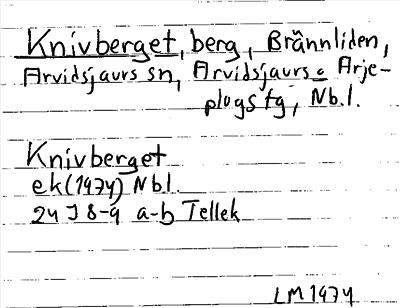 Knivberget, berg, Brännliden,
Arvidsjaurs sn, Arvidsjaurs o Arje-
plogs tg, Nb.l.
Knivberget
ek(1974) Nbl.
24 J 8-9 a-b Tellek
LM 1974